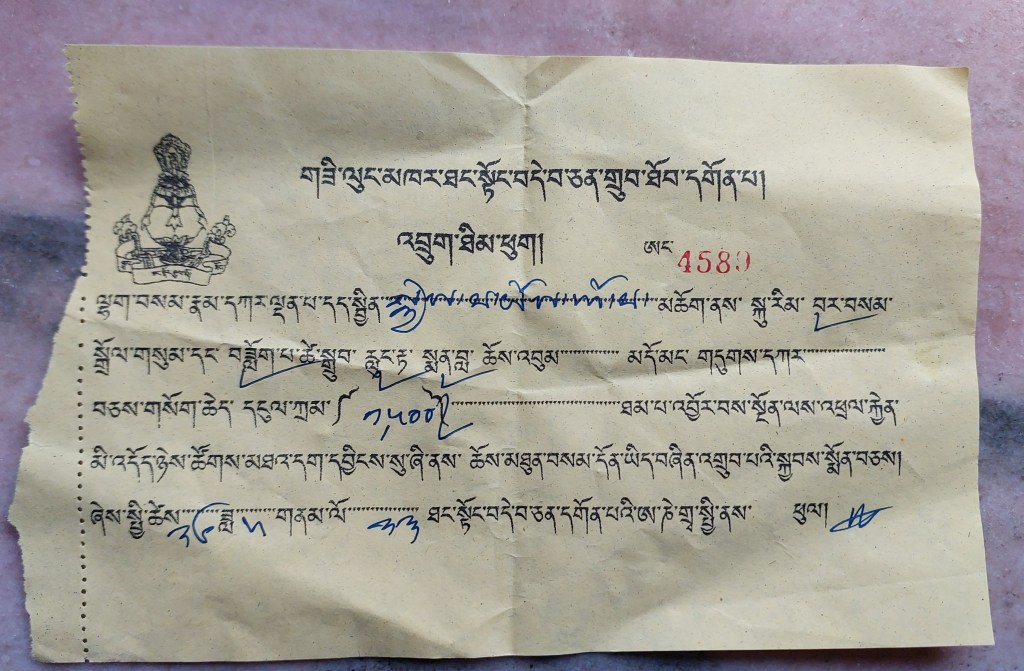 གཟི་ལུང་མཁར་ཐང་སྟོང་བདེ་བ་ཅན་གྲུབ་ཐོབ་དགོན་པ།
འབྲུག་ཐིམ་ཕུག།
ཨང་ 4589
ལྷག་བསམ་རྣམ་དཀར་ལྡན་པ་དད་སྦྱིན་ མཆོག་ནས་ སྐུ་རིམ་ བྷར་བསམ་
སྒྲོལ་གསུམ་དང་ བཟློག་པ་ཚེ་སྒྲུབ་ རླུང་རྟ་ སྨན་བླ་ ཆོས་འབུམ་ མདོ་མང་ གདུགས་དཀར་
བཅས་གསོག་ཆེད་ དངུལ་ཀྲམ་ ༼ ༡,༥༠༠ ༽ ཐམ་པ་འབྱོར་བས་སྔོན་ལས་འཕྲལ་རྐྱེན་
མི་འདོད་ཉེས་ཚོགས་མཐའ་དག་དབྱིངས་སུ་ཞི་ནས་ ཆོས་མཐུན་བསམ་དོན་ཡིད་བཞིན་འགྲུབ་པའི་སྐྱབས་སྨོན་བཅས།
ཞེས་སྤྱི་ཚེས་ ༢༦ ཟླ་ ༥ གནམ་ལོ་ ༢༣ ཐང་སྟོང་བདེ་བ་ཅན་དགོན་པའི་ཨ་ཎེ་གྲྭ་སྤྱི་ནས་ ཕུལ།